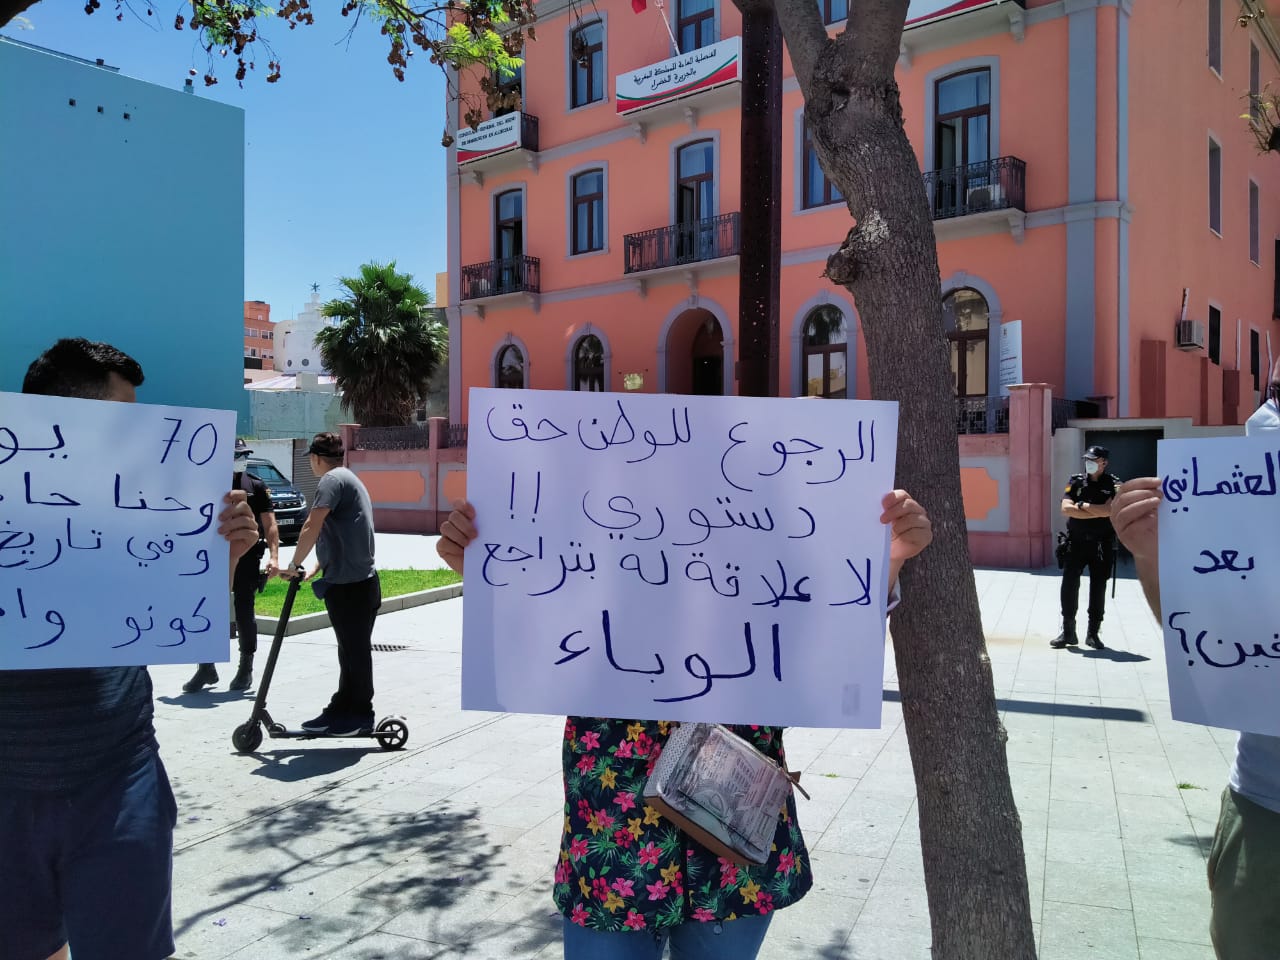 القنصلية العامة للمملكة المغربية
بالجزيرة الخضراء
CONSULADO GENERAL DEL REINO
DE MARRUECOS EN ALGECIRAS
70 يو
وحنا حا
وفي تاريخ
كونو وا
الرجوع للوطن حق
دستوري !!
لا علاقة له بتراجع
الوباء
العثماني
بعد
فين؟